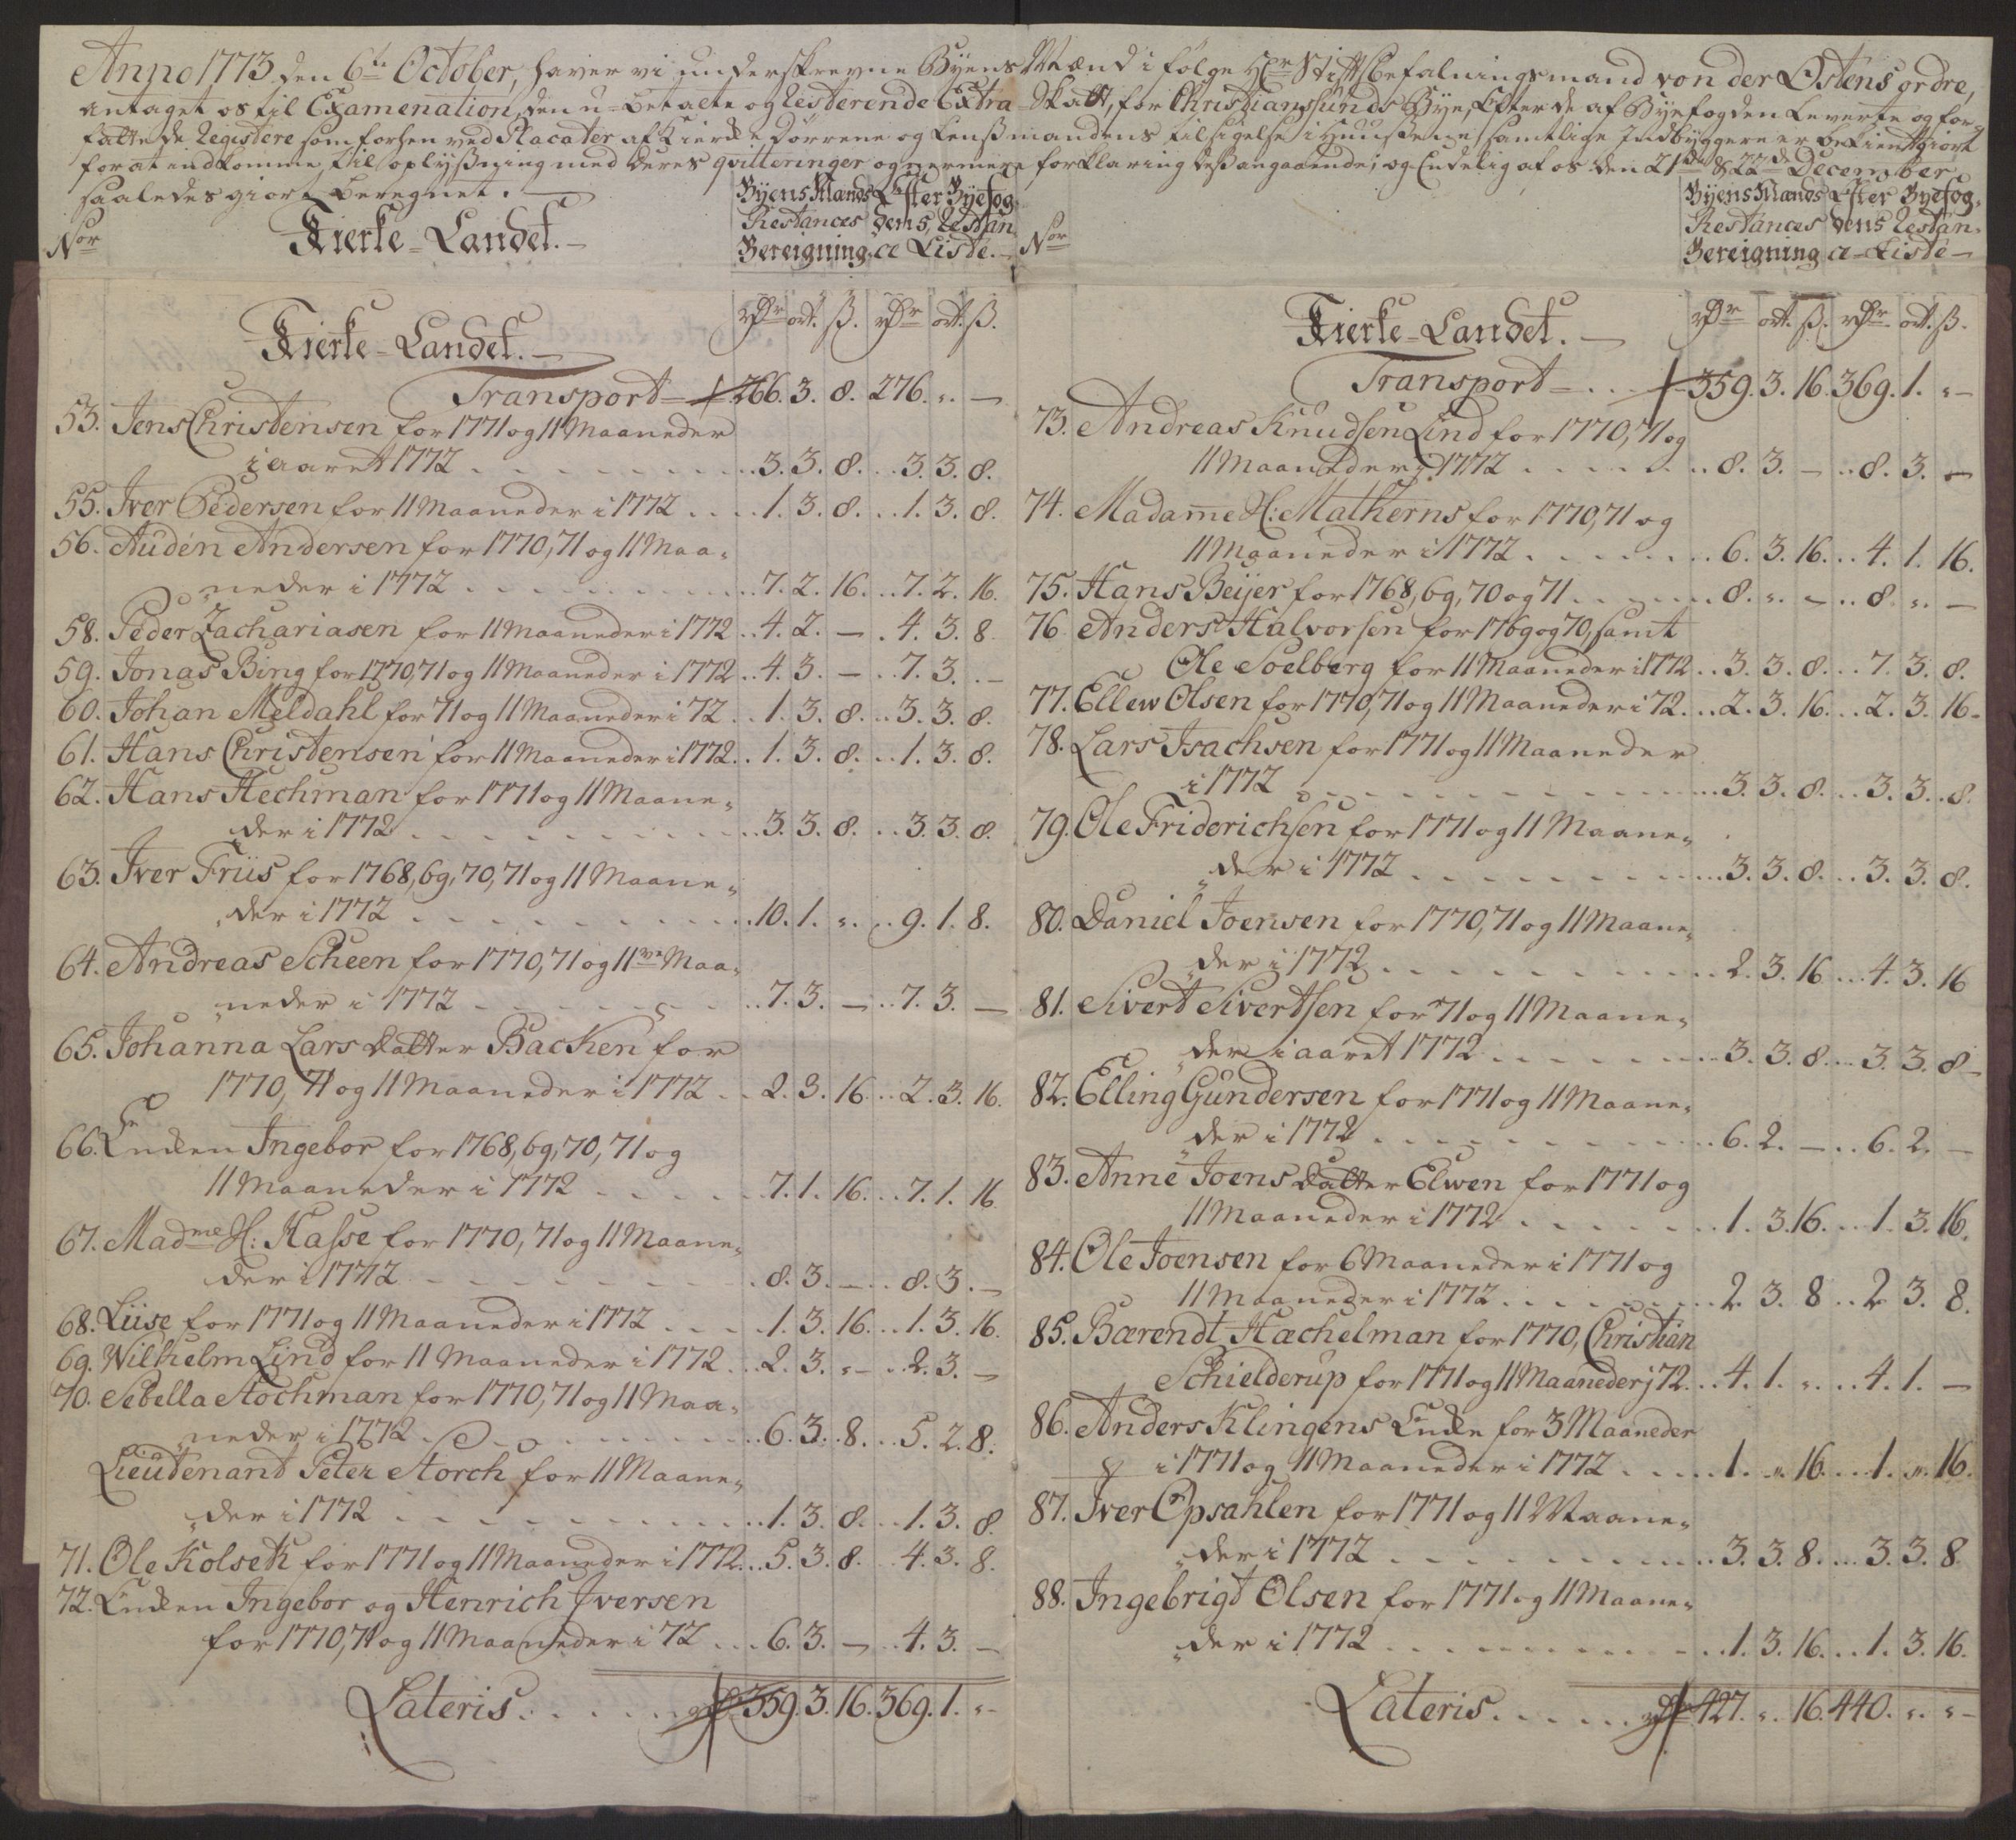 Anno 1773 den 6te October, haver vi underskrevne Byens Mænd i følge Hr Stiftsbefalningsmand von der Østens ordre,
antaget os til Examenation, den u-betalte og resterende Extra-Skatt, for Christiansunds Bye, Efter de af Byefogden leverte og for-
fattede Registere som forhen ved Placater af Kierke Dørrene og Lensmandens tilsigelse i Huusene samtlige Indbyggere er bekiendtgiort
for at indkomme til oplysning med deres qvitteringer og nermere forklaring des angaaende; og Endelig af os den 21de & 22de December
saaledes giort beregnet.
Nor
Kierke-Landet.
Byens Mænds Restances Bereigning.
Efter Byefogdens Restance Liste.
Kierke-Landet.
rdr ort. ß. rdr ort. ß.
Transport 266. 3. 8. 276. „. —
53. Jens Christensen for 1771 og 11 Maaneder
i aaret 1772 . . . 3. 3. 8. . . 3. 3. 8.
55. Iver Pedersen for 11 Maaneder i 1772 . . . 1. 3. 8. . . 1. 3. 8.
56. Auden Andersen for 1770, 71 og 11 Maa-
neder i 1772 . . . 7. 2. 16. . . 7. 2. 16.
58. Peder Zachariasen for 11 Maaneder i 1772 . . 4. 2. — . 4. 3. 8.
59. Jonas Bing for 1770, 71 og 11 Maaneder i 1772 . . 4. 3. — . . 7. 3. —
60. Johan Meldahl for 71 og 11 Maaneder i 72 . . 1. 3. 8. . . 3. 3. 8.
61. Hans Christensen for 11 Maaneder i 1772 . . 1. 3. 8. . . 1. 3. 8.
62. Hans Hechman for 1771 og 11 Maane-
der i 1772 . . . 3. 3. 8. . . 3. 3. 8.
63. Iver Friis for 1768, 69, 70, 71 og 11 Maane-
der i 1772 . . . 10. 1. „. . . 9. 1. 8.
64. Andreas Scheen for 1770, 71 og 11ve Maa-
neder i 1772 . . . 7. 3. — . . 7. 3. —
65. Johanna Lars Datter Backen for
1770, 71 og 11 Maaneder i 1772 . . 2. 3. 16. . . 2. 3. 16.
66. Enken Ingebor for 1768, 69, 70, 71 og
11 Maaneder i 1772 . . . 7. 1. 16. . . 7. 1. 16.
67. Madme H: Kasse for 1770, 71 og 11 Maane-
der i 1772 . . . 8. 3. — . . 8. 3. —
68. Liise for 1771 og 11 Maaneder i 1772 . . . 1. 3. 16. . . 1. 3. 16.
69. Wilhelm Lind for 11 Maaneder i 1772 . . 2. 3. „ — . . 2. 3. —
70. Sebella Stochman for 1770, 71 og 11 Maa-
neder i 1772 . . . 6. 3. 8. . . 5. 2. 8.
Lieutenant Peter Storch for 11 Maane-
der i 1772 . . . 1. 3. 8. . . 1. 3. 8.
71. Ole Kolsek for 1771 og 11 Maaneder i 1772 . . 5. 3. 8. . . 4. 3. 8.
72. Enken Ingebor og Henrich Iversen
for 1770, 71 og 11 Maaneder i 72 . . . 6. 3. — . . 4. 3. —
Lateris . . . . . rdr 359. 3. 16. 369. 1. „ —
Nor
Byens Mænds Restances Bereigning
Efter Byefogdens Restance-Liste
Kierke-Landet.
rdr ort. ß. rdr ort. ß.
Transport 359. 3. 16. 369. 1. „ —
73. Andreas Knudsen Lind for 1770, 71 og
11 Maaneder i 1772 . . . 8. 3. — . . 8. 3. —
74. Madame H: Matherns for 1770, 71 og
11 Maaneder i 1772 . . . 6. 3. 16. . . 4. 1. 16.
75. Hans Beijer for 1768, 69, 70 og 71 . . . 8. „. — . . 8. „. —
76. Anders Halvorsen for 1769 og 70, samt
Ole Soelberg for 11 Maaneder i 1772 . . 3. 3. 8. . . 7. 3. 8.
77. Ellew Olsen for 1770, 71 og 11 Maaneder i 72 . . . 2. 3. 16. . . 2. 3. 16.
78. Lars Isachsen for 1771 og 11 Maaneder
i 1772 . . . 3. 3. 8. . . 3. 3. 8.
79. Ole Friderichsen for 1771 og 11 Maane-
der i 1772 . . . 3. 3. 8. . . 3. 3. 8.
80. Daniel Joensen for 1770, 71 og 11 Maane-
der i 1772 . . . 2. 3. 16 . . . 4. 3. 16
81. Sivert Sivertsen for 71 og 11 Maane-
der i aaret 1772 . . . 3. 3. 8 . . . 3. 3. 8 —
82. Elling Gundersen for 1771 og 11 Maane-
der i 1772 . . . 6. 2. — . . 6. 2. —
83. Anne Joens Datter Elwen for 1771 og
11 Maaneder i 1772 . . . 1. 3. 16. . . 1. 3. 16.
84. Ole Joensen for 6 Maaneder i 1771 og
11 Maaneder i 1772 . . . 2. 3. 8 . . 2 3. 8.
85. Bærendt Hæchelman for 1770, Christian
Schielderup for 1771 og 11 Maaneder i 72 . . . 4. 1. „. . . 4. 1. —
86. Anders Klingens Enke for 3 Maaneder
i 1771 og 11 Maaneder i 1772 . . . 1. „. 16. . . 1. „. 16.
87. Iver Opsahlen for 1771 og 11 Maane-
der i 1772 . . . 3. 3. 8. . . 3. 3. 8.
88. Ingebrigt Olsen for 1771 og 11 Maane-
der i 1772 . . . 1. 3. 16. . . 1. 3. 16.
Lateris . . . . . rdr 427. „. 16. 440. „. „ —